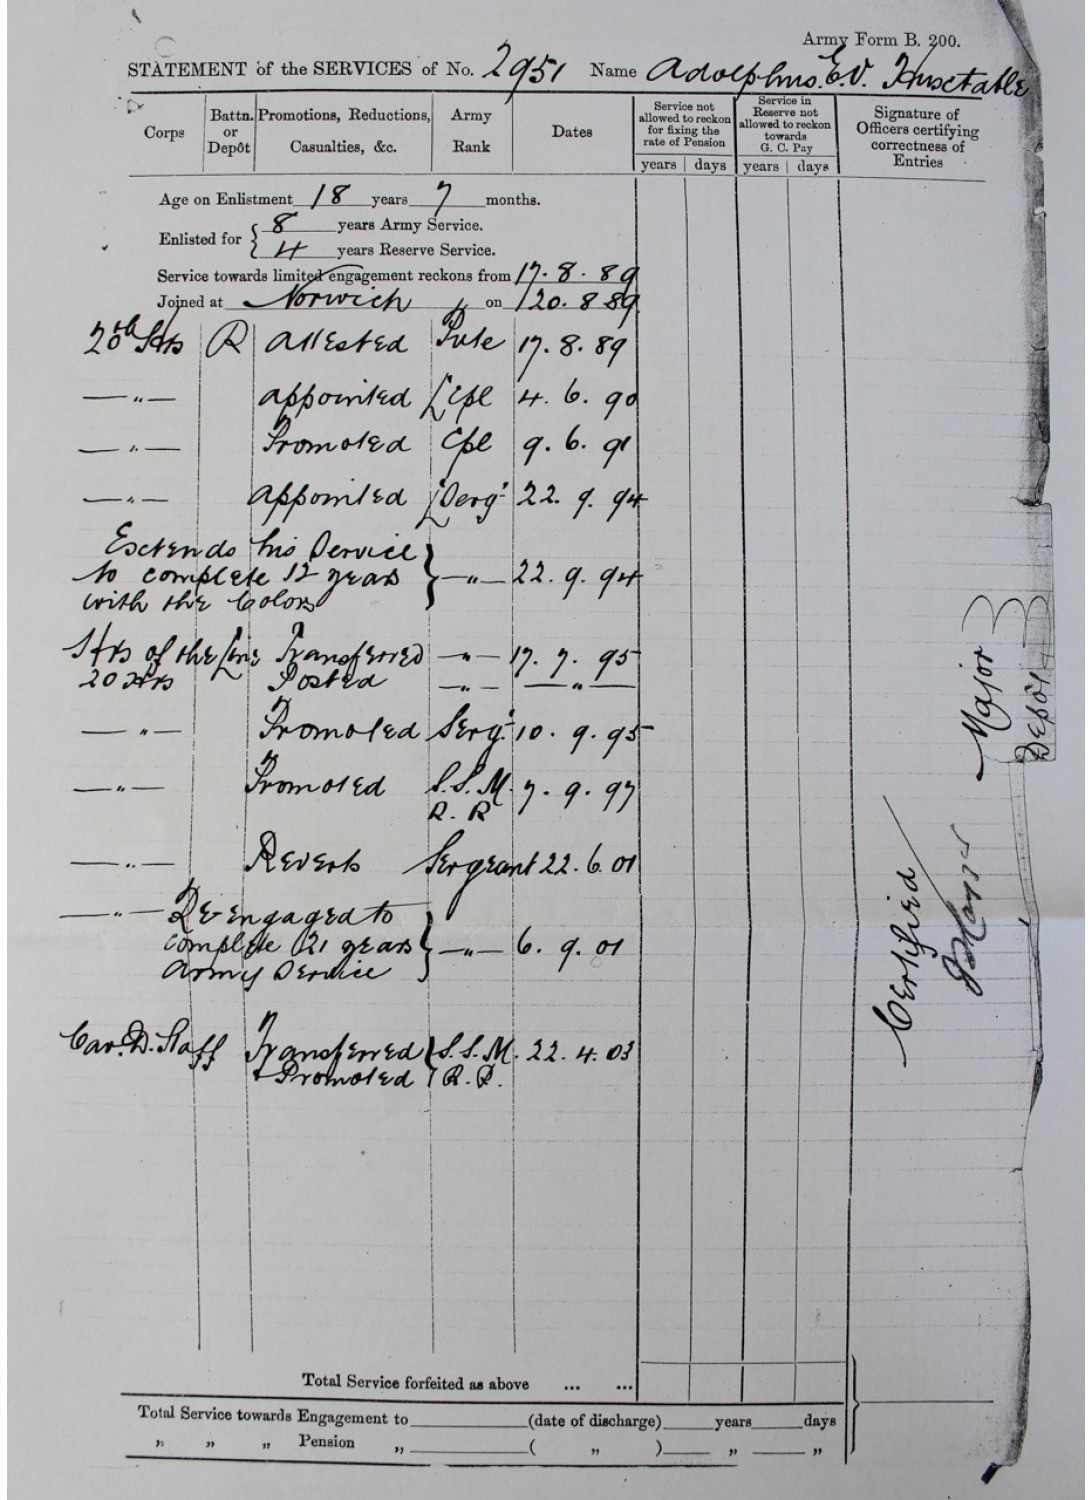 Army Form B. 200.
STATEMENT of the SERVICES of No. 2951 Name Adolphus. E. V. Huxtable
Corps
Battn. or Depôt
Promotions, Reductions, Casualties, &c.
Army Rank
Dates
Service not allowed to reckon for fixing the rate of Pension
Service in Reserve not allowed to reckon towards G. C. Pay
Signature of Officers certifying correctness of Entries
years days years days
Age on Enlistment 18 years 7 months.
Enlisted for { 8 years Army Service.
4 years Reserve Service.
Service towards limited engagement reckons from 17. 8. 89
Joined at Norwich on 20. 8 89
20th Hrs R Attested Pvte 17. 8. 89
—"— appointed L/Cpl 4. 6. 90
—"— Promoted Cpl 9. 6. 91
—"— appointed L/Sergt 22. 9. 94
Extends his Service
to complete 12 years } —"— 22. 9. 94
with the Colors
Hrs of the Line Transferred —"— 17. 7. 95
20 Hrs Posted —"— —"—
—"— Promoted Sergt 10. 9. 95
—"— Promoted S.S.M. 7. 9. 97
R. R
—"— Reverts Sergeant 22. 6. 01
—"— Re-engaged to
complete 21 years } —"— 6. 9. 01
Army Service
Cav. D. Staff Transferred S.S.M. 22. 4. 03
+ Promoted R.R.
Certified
Major
Depôt
Total Service forfeited as above ... ...
Total Service towards Engagement to (date of discharge) years days
" " " Pension " ( " ) " "